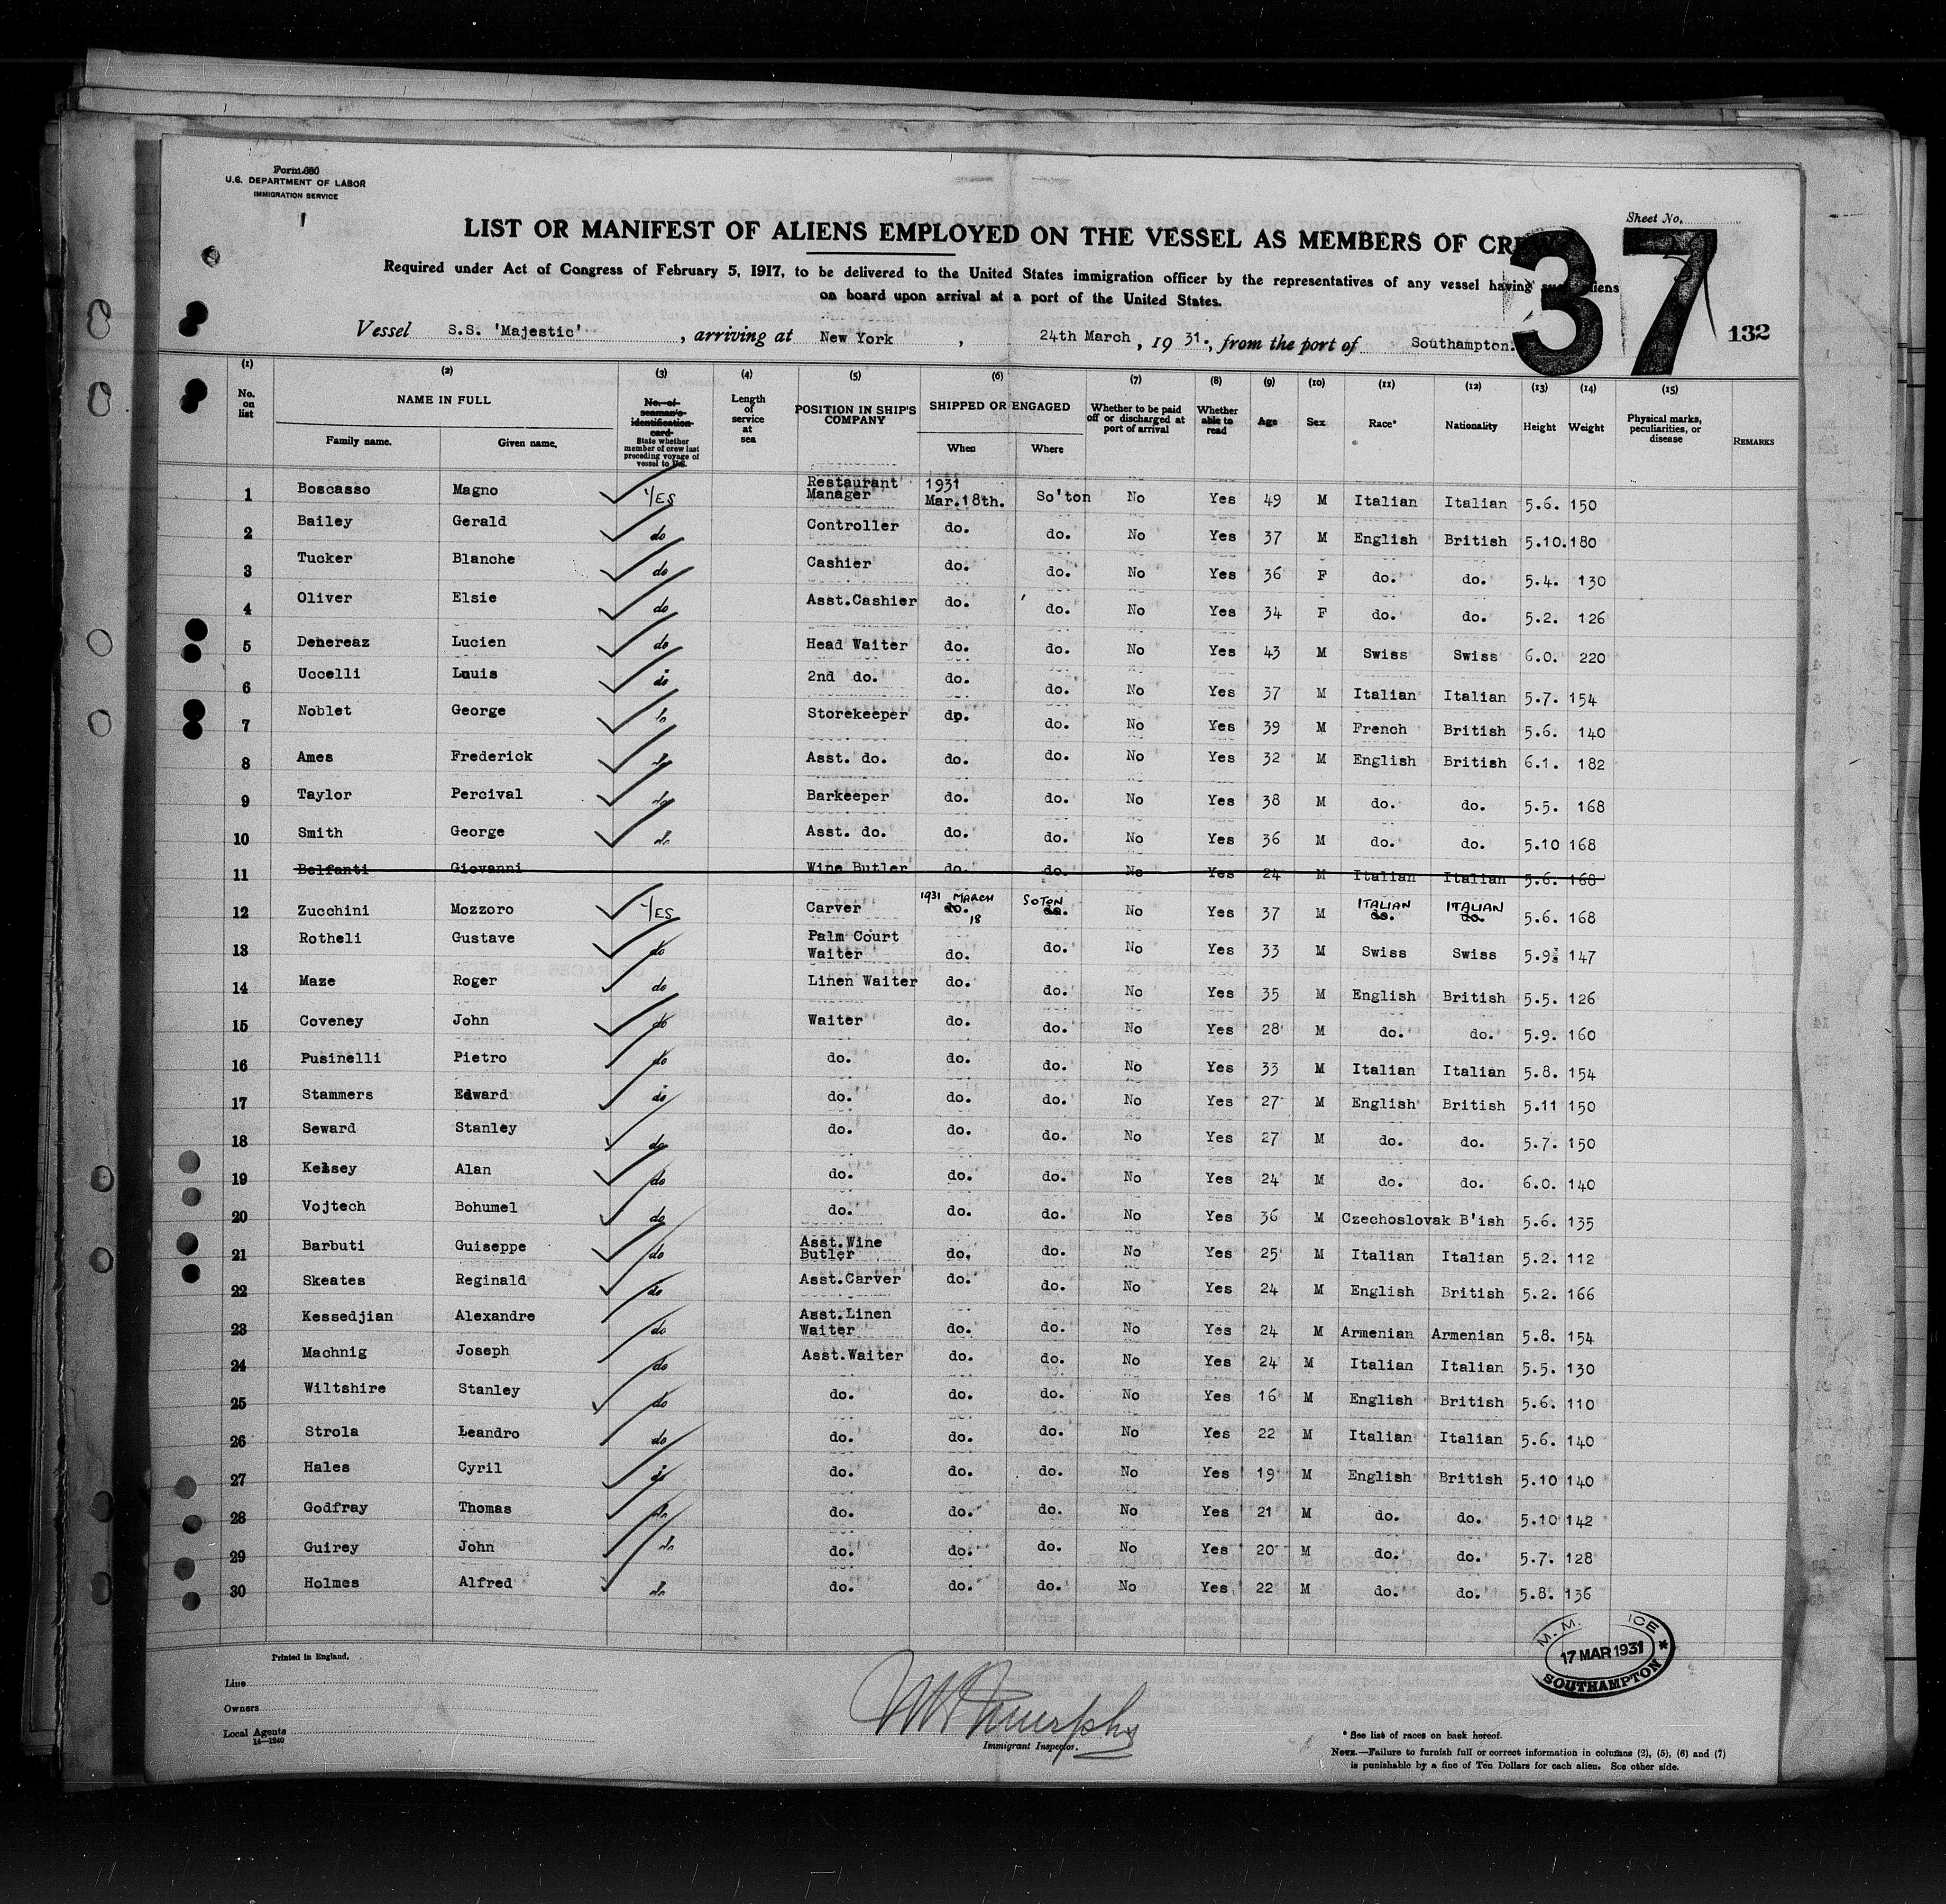 Form 680
U.S. DEPARTMENT OF LABOR
IMMIGRATION SERVICE
Sheet No.
LIST OR MANIFEST OF ALIENS EMPLOYED ON THE VESSEL AS MEMBERS OF CREW
37
Required under Act of Congress of February 5, 1917, to be delivered to the United States immigration officer by the representatives of any vessel having such aliens
on board upon arrival at a port of the United States.
Vessel S.S. 'Majestic', arriving at New York, 24th March, 1931., from the port of Southampton.
132
(1) (2) (3) (4) (5) (6) (7) (8) (9) (10) (11) (12) (13) (14) (15)
No. on list NAME IN FULL Family name. Given name. No. of seaman's identification card State whether member of crew last preceding voyage of vessel to U.S. Length of service at sea POSITION IN SHIP'S COMPANY SHIPPED OR ENGAGED When Where Whether to be paid off or discharged at port of arrival Whether able to read Age Sex Race* Nationality Height Weight Physical marks, peculiarities, or disease REMARKS
1 Boscasso Magno YES Restaurant Manager 1931 Mar.18th. So'ton No Yes 49 M Italian Italian 5.6. 150
2 Bailey Gerald do Controller do. do. No Yes 37 M English British 5.10. 180
3 Tucker Blanche do Cashier do. do. No Yes 36 F do. do. 5.4. 130
4 Oliver Elsie do Asst.Cashier do. do. No Yes 34 F do. do. 5.2. 126
5 Denereaz Lucien do Head Waiter do. do. No Yes 43 M Swiss Swiss 6.0. 220
6 Uccelli Louis do 2nd do. do. do. No Yes 37 M Italian Italian 5.7. 154
7 Noblet George do Storekeeper do. do. No Yes 39 M French British 5.6. 140
8 Ames Frederick do Asst. do. do. do. No Yes 32 M English British 6.1. 182
9 Taylor Percival do Barkeeper do. do. No Yes 38 M do. do. 5.5. 168
10 Smith George do Asst. do. do. do. No Yes 36 M do. do. 5.10 168
11 Belfanti Giovanni Wine Butler do. do. No Yes 24 M Italian Italian 5.6. 168
12 Zucchini Mozzoro YES Carver 1931 MARCH 18 do. SOTON do. No Yes 37 M ITALIAN do. ITALIAN do. 5.6. 168
13 Rotheli Gustave do Palm Court Waiter do. do. No Yes 33 M Swiss Swiss 5.9. 147
14 Maze Roger do Linen Waiter do. do. No Yes 35 M English British 5.5. 126
15 Coveney John do Waiter do. do. No Yes 28 M do. do. 5.9. 160
16 Pusinelli Pietro do do. do. do. No Yes 33 M Italian Italian 5.8. 154
17 Stammers Edward do do. do. do. No Yes 27 M English British 5.11 150
18 Seward Stanley do do. do. do. No Yes 27 M do. do. 5.7. 150
19 Kelsey Alan do do. do. do. No Yes 24 M do. do. 6.0. 140
20 Vojtech Bohumel do do. do. do. No Yes 36 M Czechoslovak B'ish 5.6. 135
21 Barbuti Guiseppe do Asst.Wine Butler do. do. No Yes 25 M Italian Italian 5.2. 112
22 Skeates Reginald do Asst.Carver do. do. No Yes 24 M English British 5.2. 166
23 Kessedjian Alexandre do Asst.Linen Waiter do. do. No Yes 24 M Armenian Armenian 5.8. 154
24 Machnig Joseph do Asst.Waiter do. do. No Yes 24 M Italian Italian 5.5. 130
25 Wiltshire Stanley do do. do. do. No Yes 16 M English British 5.6. 110
26 Strola Leandro do do. do. do. No Yes 22 M Italian Italian 5.6. 140
27 Hales Cyril do do. do. do. No Yes 19 M English British 5.10 140
28 Godfray Thomas do do. do. do. No Yes 21 M do. do. 5.10 142
29 Guirey John do do. do. do. No Yes 20 M do. do. 5.7. 128
30 Holmes Alfred do do. do. do. No Yes 22 M do. do. 5.8. 136
17 MAR 1931
SOUTHAMPTON
Printed in England.
Line
Owners
Local Agents
14—1240
Murphy
Immigrant Inspector.
* See list of races on back hereof.
NOTE.—Failure to furnish full or correct information in columns (2), (5), (6) and (7)
is punishable by a fine of Ten Dollars for each alien. See other side.